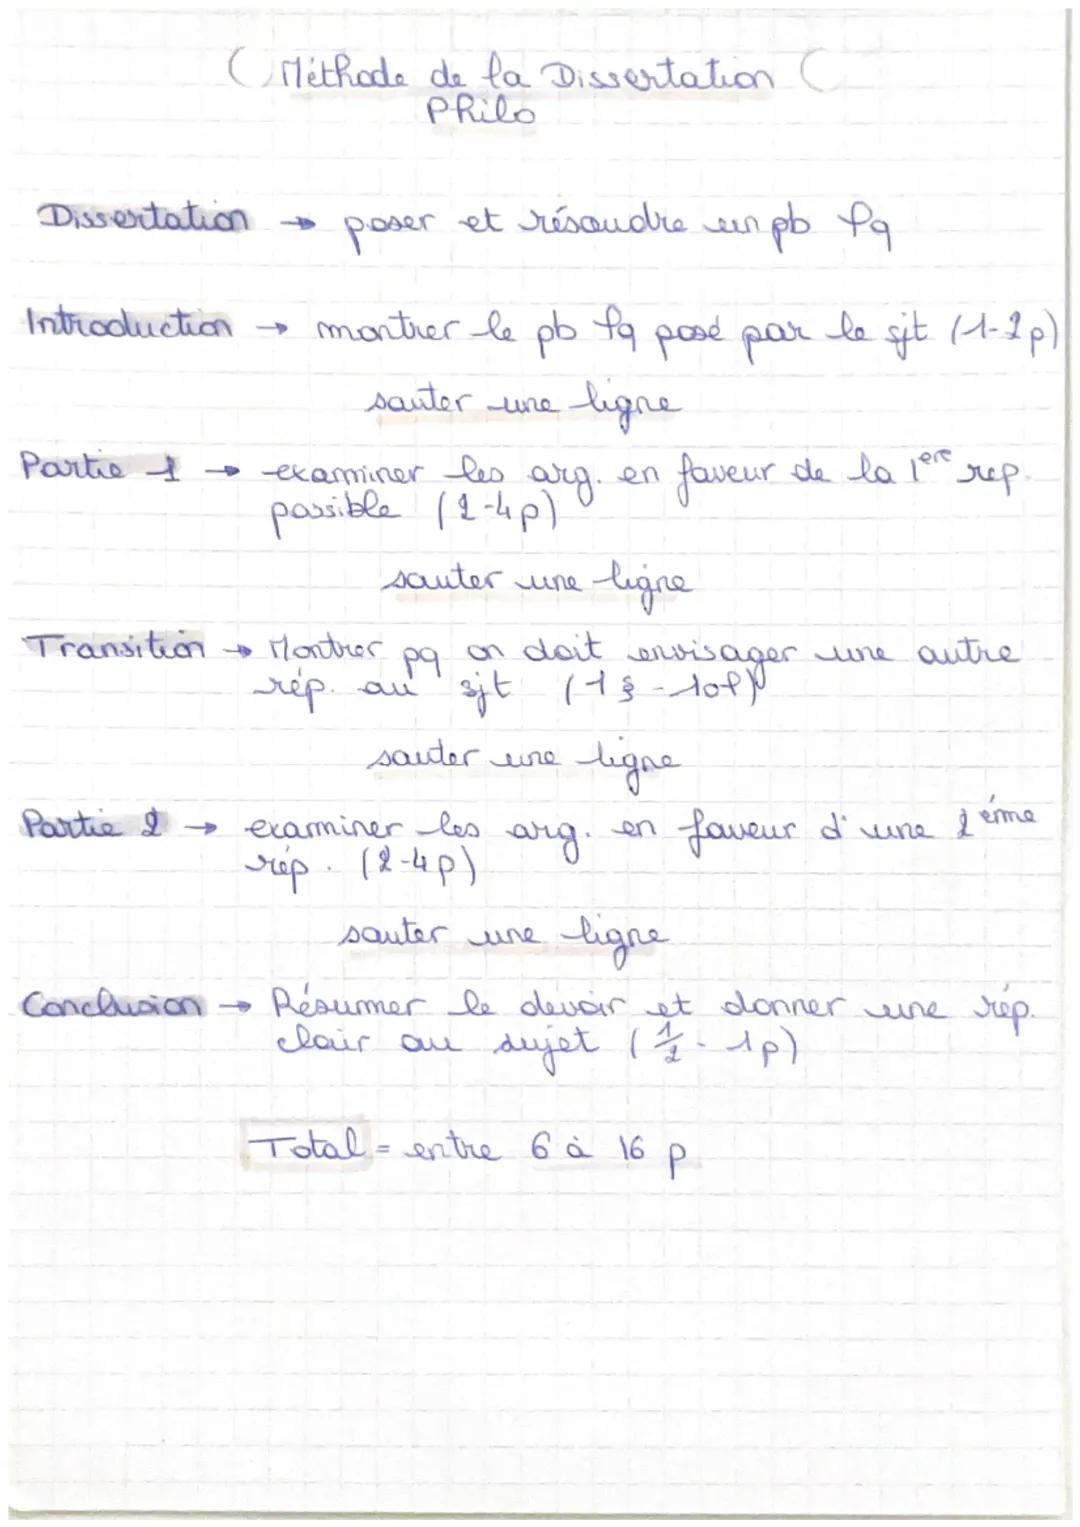 Méthode de la Dissertation
Philo
Dissertation → poser et résoudre un pb φq
Introduction → montrer le pb φq posé par le sjt (1-2p)
sauter une ligne
Partie 1 → examiner les arg. en faveur de la 1ère rep.
possible (2-4p)
sauter une ligne
Transition → Montrer pq on doit envisager une autre
rép. au sjt (1§ - 10l)
sauter une ligne
Partie 2 → examiner les arg. en faveur d'une 2ème
rép. (2-4p)
sauter une ligne
Conclusion → Résumer le devoir et donner une rép.
clair au sujet (1/2 - 1p)
Total = entre 6 à 16 p